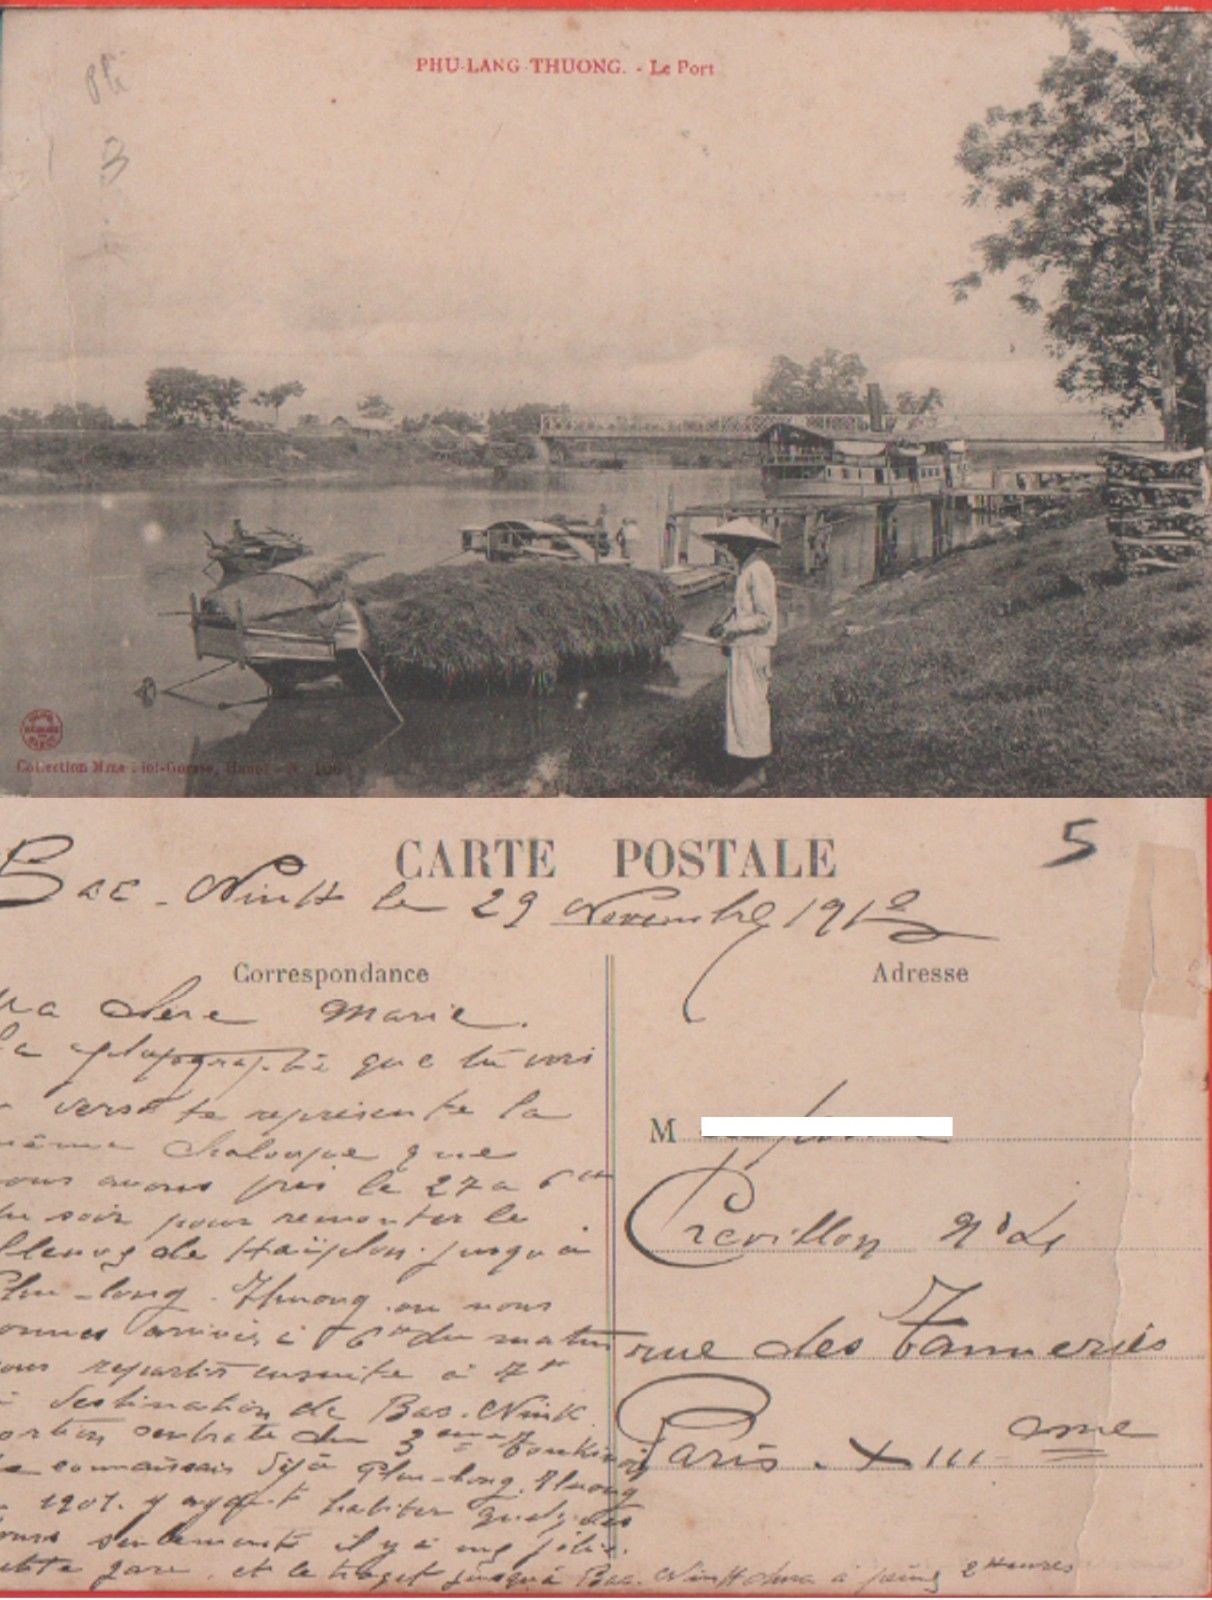 PHU-LANG-THUONG. - Le Port
3
Collection Mme, Hanoï
CARTE POSTALE
5
Bac-Ninh le 29 Novembre 1912
Correspondance
Adresse
Marie.
La photographie que tu vois
verso te représente la
même chaloupe que
nous avons pris le 27 a 6
du soir pour remonter le
fleuve de Haïphon. jusqu'à
Phu-long. Thuong. ou nous
arrivés à 6 du matin
repartir ensuite à 7
destination de Bac. Nink
centrale du 3eme Tonkinois
connaissais déjà Phu-long. Thuong
1907. y ayant habiter quelques
jours seulement il y a une jolie.
petite gare, et le trajet jusqu'à Bac. Ninh dure à peine 2 Heures
M
Crevillon
rue des Tanneries
Paris. XIII eme